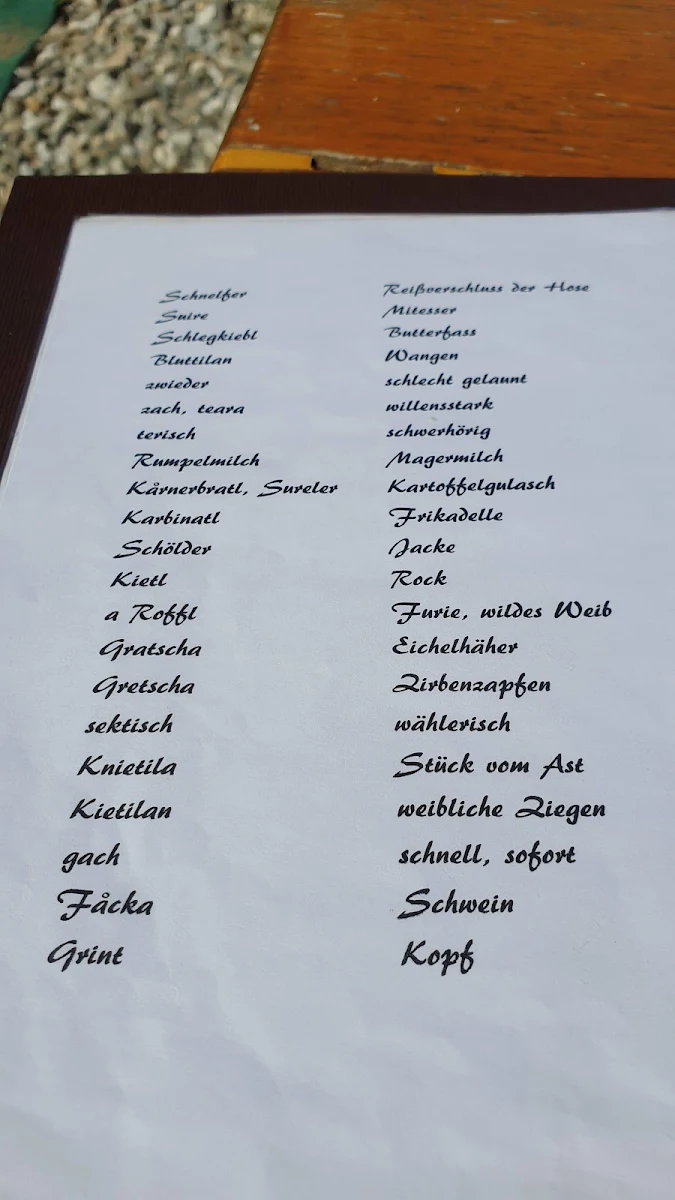 Schneifer Reißverschluss der Hose
Suire Mitesser
Schlegkiebl Butterfass
Bluttilan Wangen
zwieder schlecht gelaunt
zach, teara willensstark
terisch schwerhörig
Rumpelmilch Magermilch
Kårnerbratl, Sureler Kartoffelgulasch
Karbinatl Frikadelle
Schölder Jacke
Kietl Rock
a Roffl Furie, wildes Weib
Gratscha Eichelhäher
Gretscha Zirbenzapfen
sektisch wählerisch
Knietila Stück vom Ast
Kietilan weibliche Ziegen
gach schnell, sofort
Fåcka Schwein
Grint Kopf